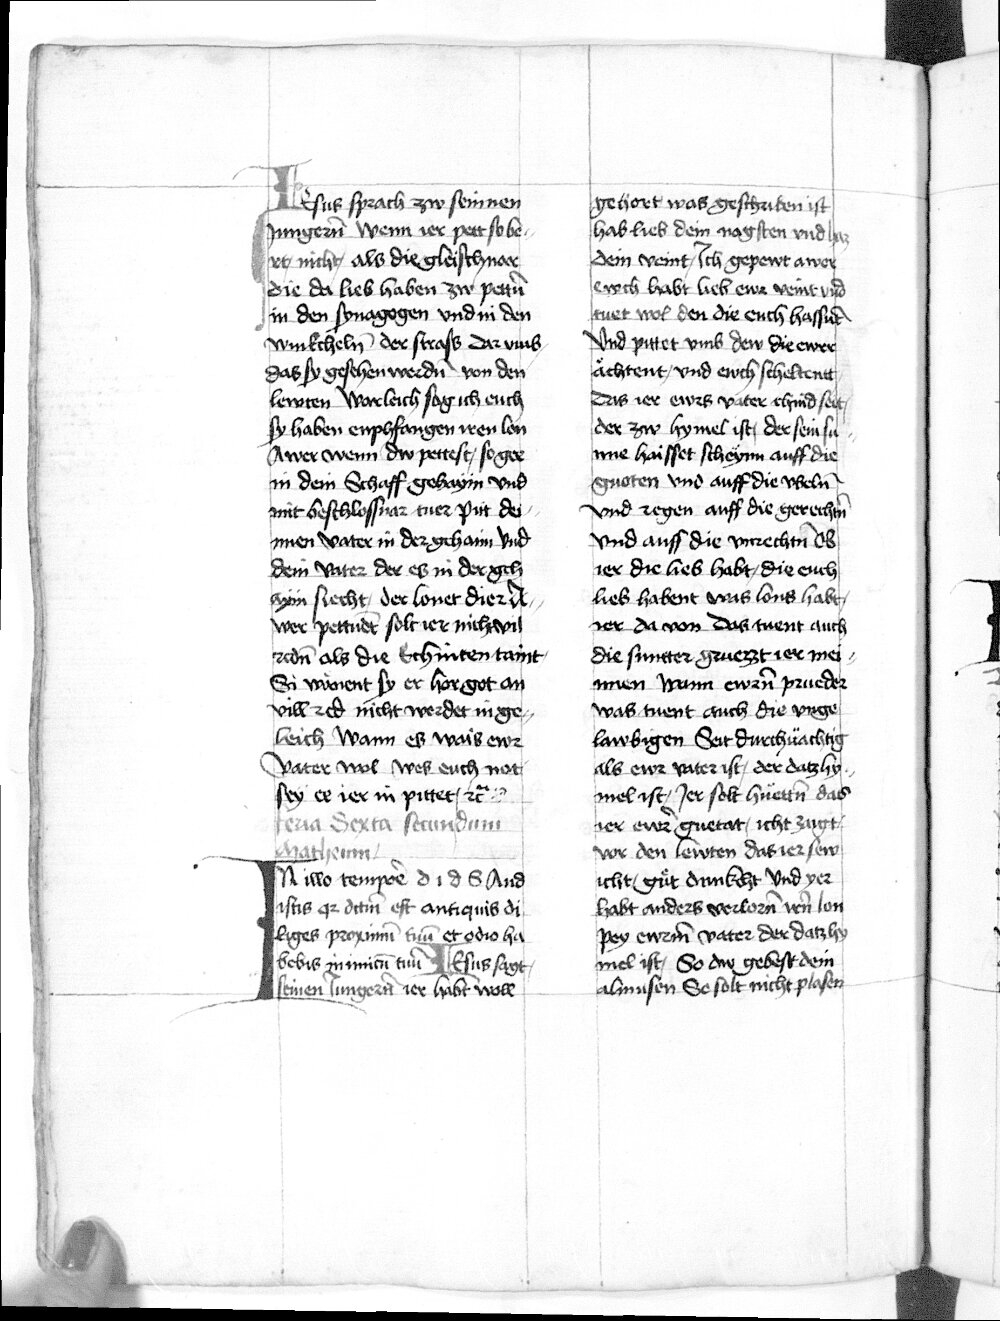 Jesus sprach zw seinnen
Jungern̄ Wenn ier pett so be
rt nicht als die gleischnar
die da lieb haben zw pettn̄
in den synagogen vnd in den
winkcheln̄ der strass Dar vmb
das sy gesehen werdn̄ von den
lewten Warleich sag ich euch
sy haben enphfangen iren lon
Awer wenn dw pettest so gee
in dein Schaff gehaym vnd
mit beschlossnar tuer Pitt dei
nnen vater in der gehaim Vnd
dein vater der es in der geh
aym siecht der lonet dier A
wer pettundt solt ier nicht vil
redn̄ als die
Si wänent sy er hör got an
vill red nicht werdet in ge
leich Wann es wais ewr
vater wol wes euch not
sey ee ier in pittet
feria Sexta secundum
Matheum
In illo tempore d i d S Aud
istis qr dictum est antiquis di
liges proximū tuū et odio ha
bebis inimicū tuū Jesus sagt
seinen Jungern̄ ier habt woll
gehort was geschriben ist
hab lieb dein nagsten vnd haz
dein veint Ich gepewt awer
ewch habt lieb ewr veint vnd
tuet wol den die euch hassūt
Vnd pittet vmb dew die ewer
ächtent vnd ewch scheltent
Das ier ewrs vater chind seit
der zw hymel ist der sein su
nne haisset scheynn auff die
guoten vnd auff die vbeln̄
vnd regen auff die gerechtn̄
vnd auff die vnrechtn̄ Ob
ier die lieb habt die euch
lieb habent was lons habt
ier da von Das tuent auch
die sunter gruezzt ier mei
nnen Wann ewrn̄ prueder
was tuent auch die vnge
lawbigen Seit durchnächtig
als ewr vater ist der datz hy
mel ist Jer solt hüettn̄ das
ier ewr guetat icht zaigt
vor den lewten das ier sew
icht güt dunkcht Vnd yer
habt anders verlorn̄ lon
pey ewrm vater der datz hy
mel ist So dw gebest dein
almusen So solt nicht plasen